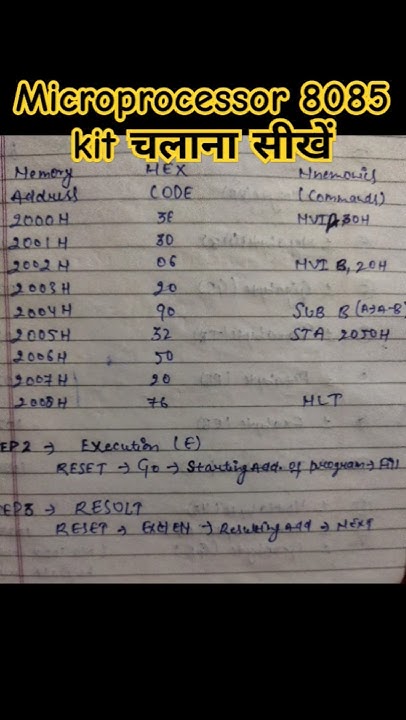 Microprocessor 8085
kit चलाना सीखें
Memory HEX Mnemonics
Address CODE (Commands)
2000H 3E MVI A 30H
2001H 30
2002H 06 MVI B, 20H
2003H 20
2004H 90 SUB B (A→A-B)
2005H 32 STA 2050H
2006H 50
2007H 20
2008H 76 HLT
EP2 → Execution (E)
RESET → GO → Starting Add. of program → Fill
EP3 → RESULT
RESET → EXMEM → Resulting Add → NEXT